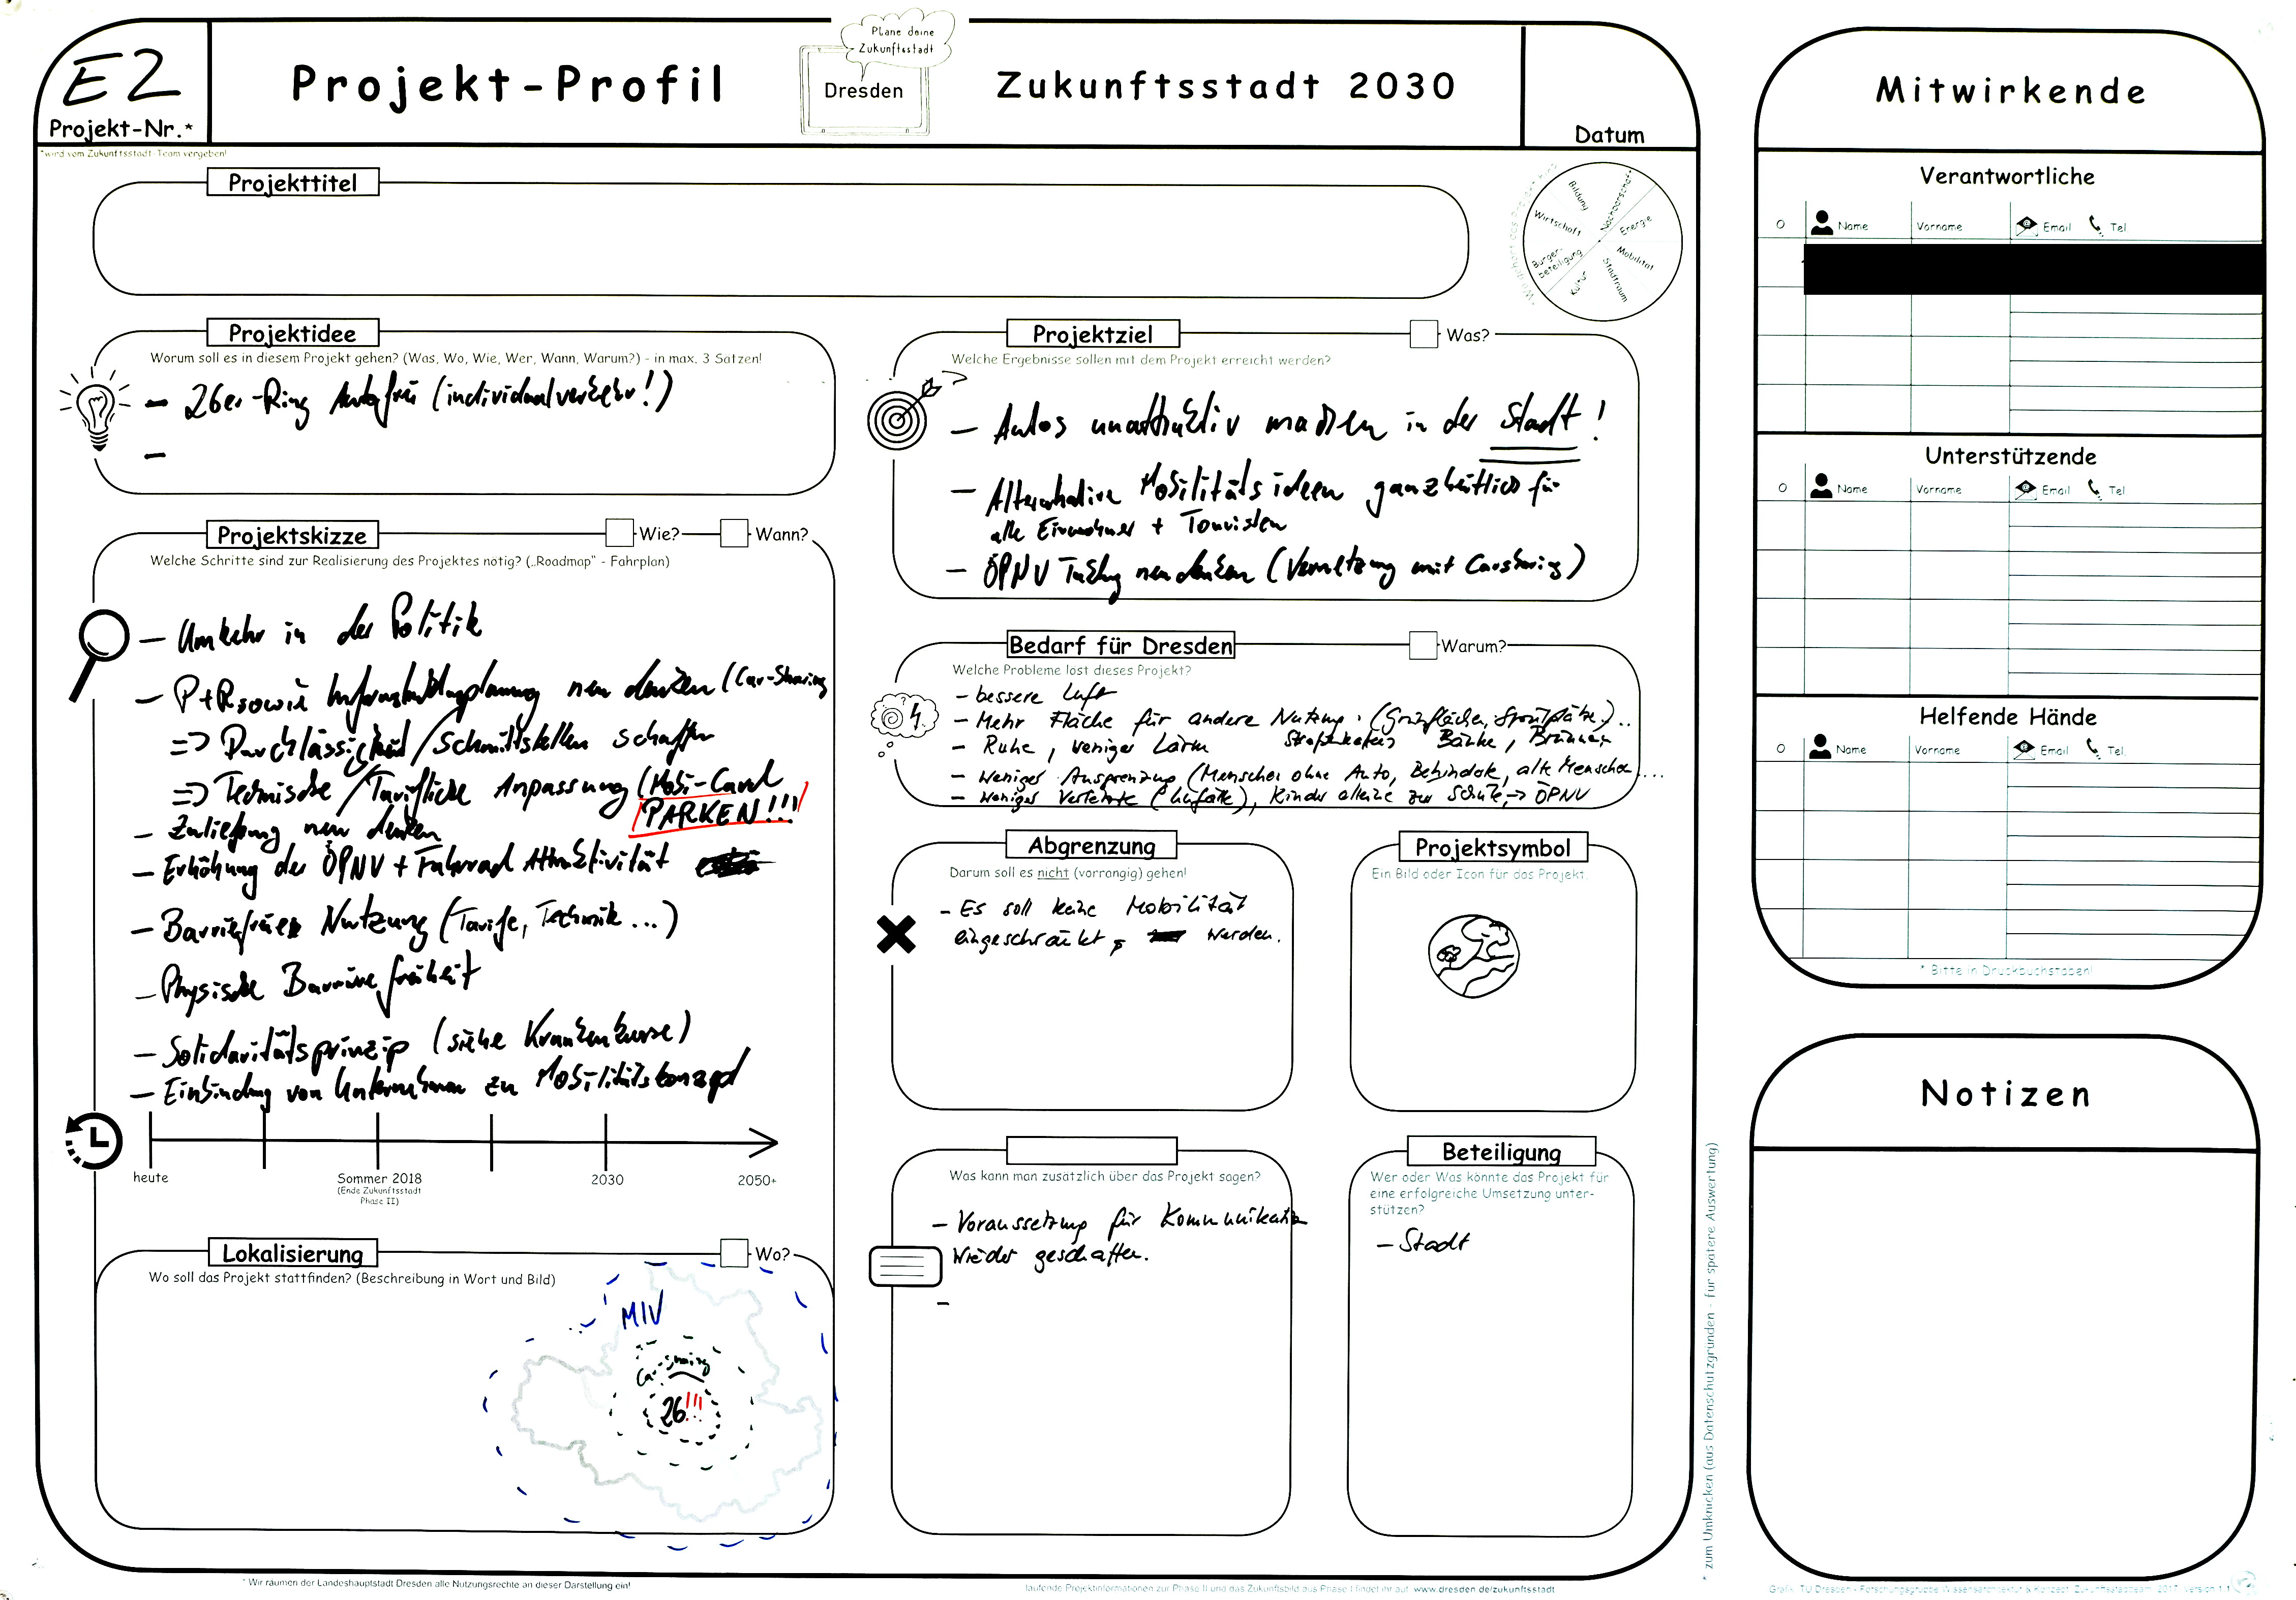 E2
Projekt-Nr.*
*wird vom Zukunftsstadt-Team vergeben!
Projekt-Profil
Plane deine
Zukunftsstadt
Dresden
Zukunftsstadt 2030
Datum
Projekttitel
Bildung
Nachbarschaft
Energie
Mobilität
Stadtraum
Kultur
Bürger-
beteiligung
Wirtschaft
Projektidee
Worum soll es in diesem Projekt gehen? (Was, Wo, Wie, Wer, Wann, Warum?) - in max. 3 Sätzen!
- 26er-Ring Autofrei (individualverkehr!)
-
Projektskizze
Wie?
Wann?
Welche Schritte sind zur Realisierung des Projektes nötig? („Roadmap" - Fahrplan)
- Umkehr in der Politik
- P+R sowie neu denken (Car-Sharing
=> Durchlässigkeit/Schnittstellen schaffen
=> Technische/Tarifliche Anpassung (Mobi-Card
PARKEN!!!
- neu denken
- Erhöhung der ÖPNV + Fahrrad Attraktivität
- Barrierefreie Nutzung (Tarife, Technik...)
- Physische Barrierefreiheit
- Solidaritätsprinzip (siehe Krankenkasse)
- Einbindung von Unternehmen zu Mobilitätskonzept
heute
Sommer 2018
(Ende Zukunftsstadt
Phase II)
2030
2050+
Lokalisierung
Wo?
Wo soll das Projekt stattfinden? (Beschreibung in Wort und Bild)
MIV
Car-Sharing
26!!!
Projektziel
Was?
Welche Ergebnisse sollen mit dem Projekt erreicht werden?
- Autos unattraktiv machen in der Stadt!
- Alternative Mobilitätsideen ganzheitlich für
alle Einwohner + Touristen
- ÖPNV neu denken (Vernetzung mit Carsharing)
Bedarf für Dresden
Warum?
Welche Probleme löst dieses Projekt?
- bessere Luft
- Mehr Fläche für andere Nutzung: (Grünflächen, Sportplätze)..
- Ruhe, weniger Lärm Straßencafés Bänke, Brunnen
- Weniger Ausgrenzung (Menschen ohne Auto, Behinderte, alte Menschen)...
- Weniger Verletzte (Unfälle), Kinder alleine zur Schule, -> ÖPNV
Abgrenzung
Darum soll es nicht (vorrangig) gehen!
- Es soll keine Mobilität
eingeschränkt werden.
Projektsymbol
Ein Bild oder Icon für das Projekt.
Was kann man zusätzlich über das Projekt sagen?
- Voraussetzung für Kommunikation
wieder geschaffen.
-
Beteiligung
Wer oder Was könnte das Projekt für
eine erfolgreiche Umsetzung unter-
stützen?
- Stadt
Mitwirkende
Verantwortliche
Name Vorname Email Tel.
Unterstützende
Name Vorname Email Tel
Helfende Hände
Name Vorname Email Tel.
* Bitte in Druckbuchstaben!
Notizen
* zum Umknicken (aus Datenschutzgründen - für spätere Auswertung)
* Wir räumen der Landeshauptstadt Dresden alle Nutzungsrechte an dieser Darstellung ein!
laufende Projektinformationen zur Phase II und das Zukunftsbild aus Phase I findet ihr auf: www.dresden.de/zukunftsstadt